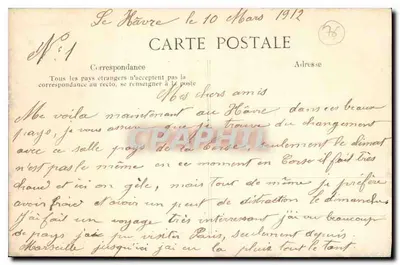 Le Hâvre le 10 Mars 1912
Nº1
CARTE POSTALE
Correspondance
Adresse
Tous les pays étrangers n'acceptent pas la
correspondance au recto, se renseigner à la poste
Mes chers amis
Me voila maintenant au Hâvre dans ces beaux
pays, je vous assure que je trouve du changement
avec ce salle pays de la Corse seulement le climat
n'est pas le même en ce moment en Corse il fait très
chaud et ici on gêle, mais tout de même je préfère
avoir froid et avoir un peut de distraction le dimanche
J'ai fait un voyage très intéressant j'ai vu beaucoup
de pays j'ai pu visiter Paris, seulement depuis
Marseille jusqu'ici j'ai eu la pluie tout le temps.